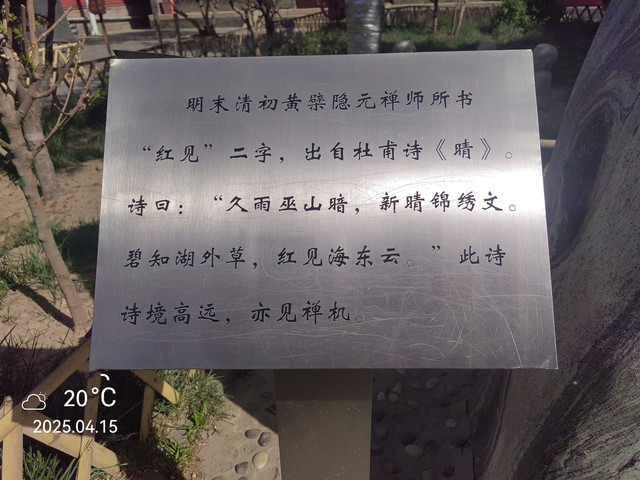 明末清初黄檗隐元禅师所书
“红见”二字，出自杜甫诗《晴》。
诗曰：“久雨巫山暗，新晴锦绣文。
碧知湖外草，红见海东云。”此诗
诗境高远，亦见禅机。
20℃
2025.04.15